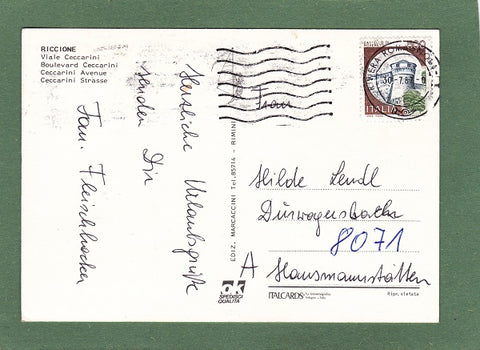 RICCIONE
Viale Ceccarini
Boulevard Ceccarini
Ceccarini Avenue
Ceccarini Strasse
Herzliche Urlaubsgrüße
senden Dir
Fam. Fleischhacker
EDIZ. MARCACCINI Tel. 85714 - RIMINI
ITALIA
30-7.87-8
Frau
Hilde Lendl
8071
A Hausmannstätten
OK
SPEDISCI
QUALITÀ
ITALCARDS
Ripr. vietata